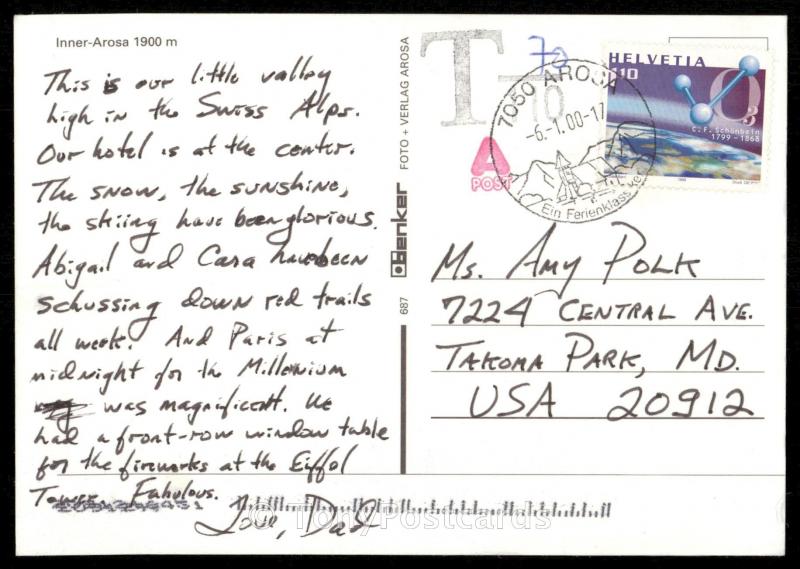 Inner-Arosa 1900 m
This is our little valley
high in the Swiss Alps.
Our hotel is at the center.
The snow, the sunshine,
the skiing have been glorious.
Abigail and Cara have been
schussing down red trails
all week. And Paris at
midnight for the Millenium
was magnificent. We
had a front-row window table
for the fireworks at the Eiffel
Tower. Fabulous.
Love, Dad
FOTO + VERLAG AROSA
denker
687
T
70
10
A
POST
7050 AROSA
-6.-1.00-17
Ein Ferienklassiker
HELVETIA
110
O3
C.F. Schönbein
1799-1868
Ms. Amy Polk
7224 Central Ave.
Takoma Park, Md.
USA 20912
© TonyPostcards